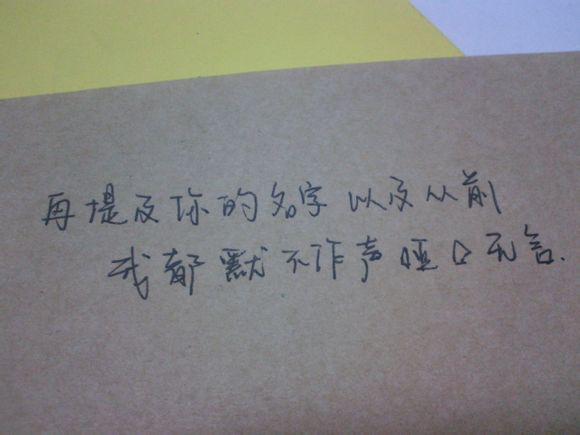 再提及你的名字以及从前
我都默不作声哑口无言.